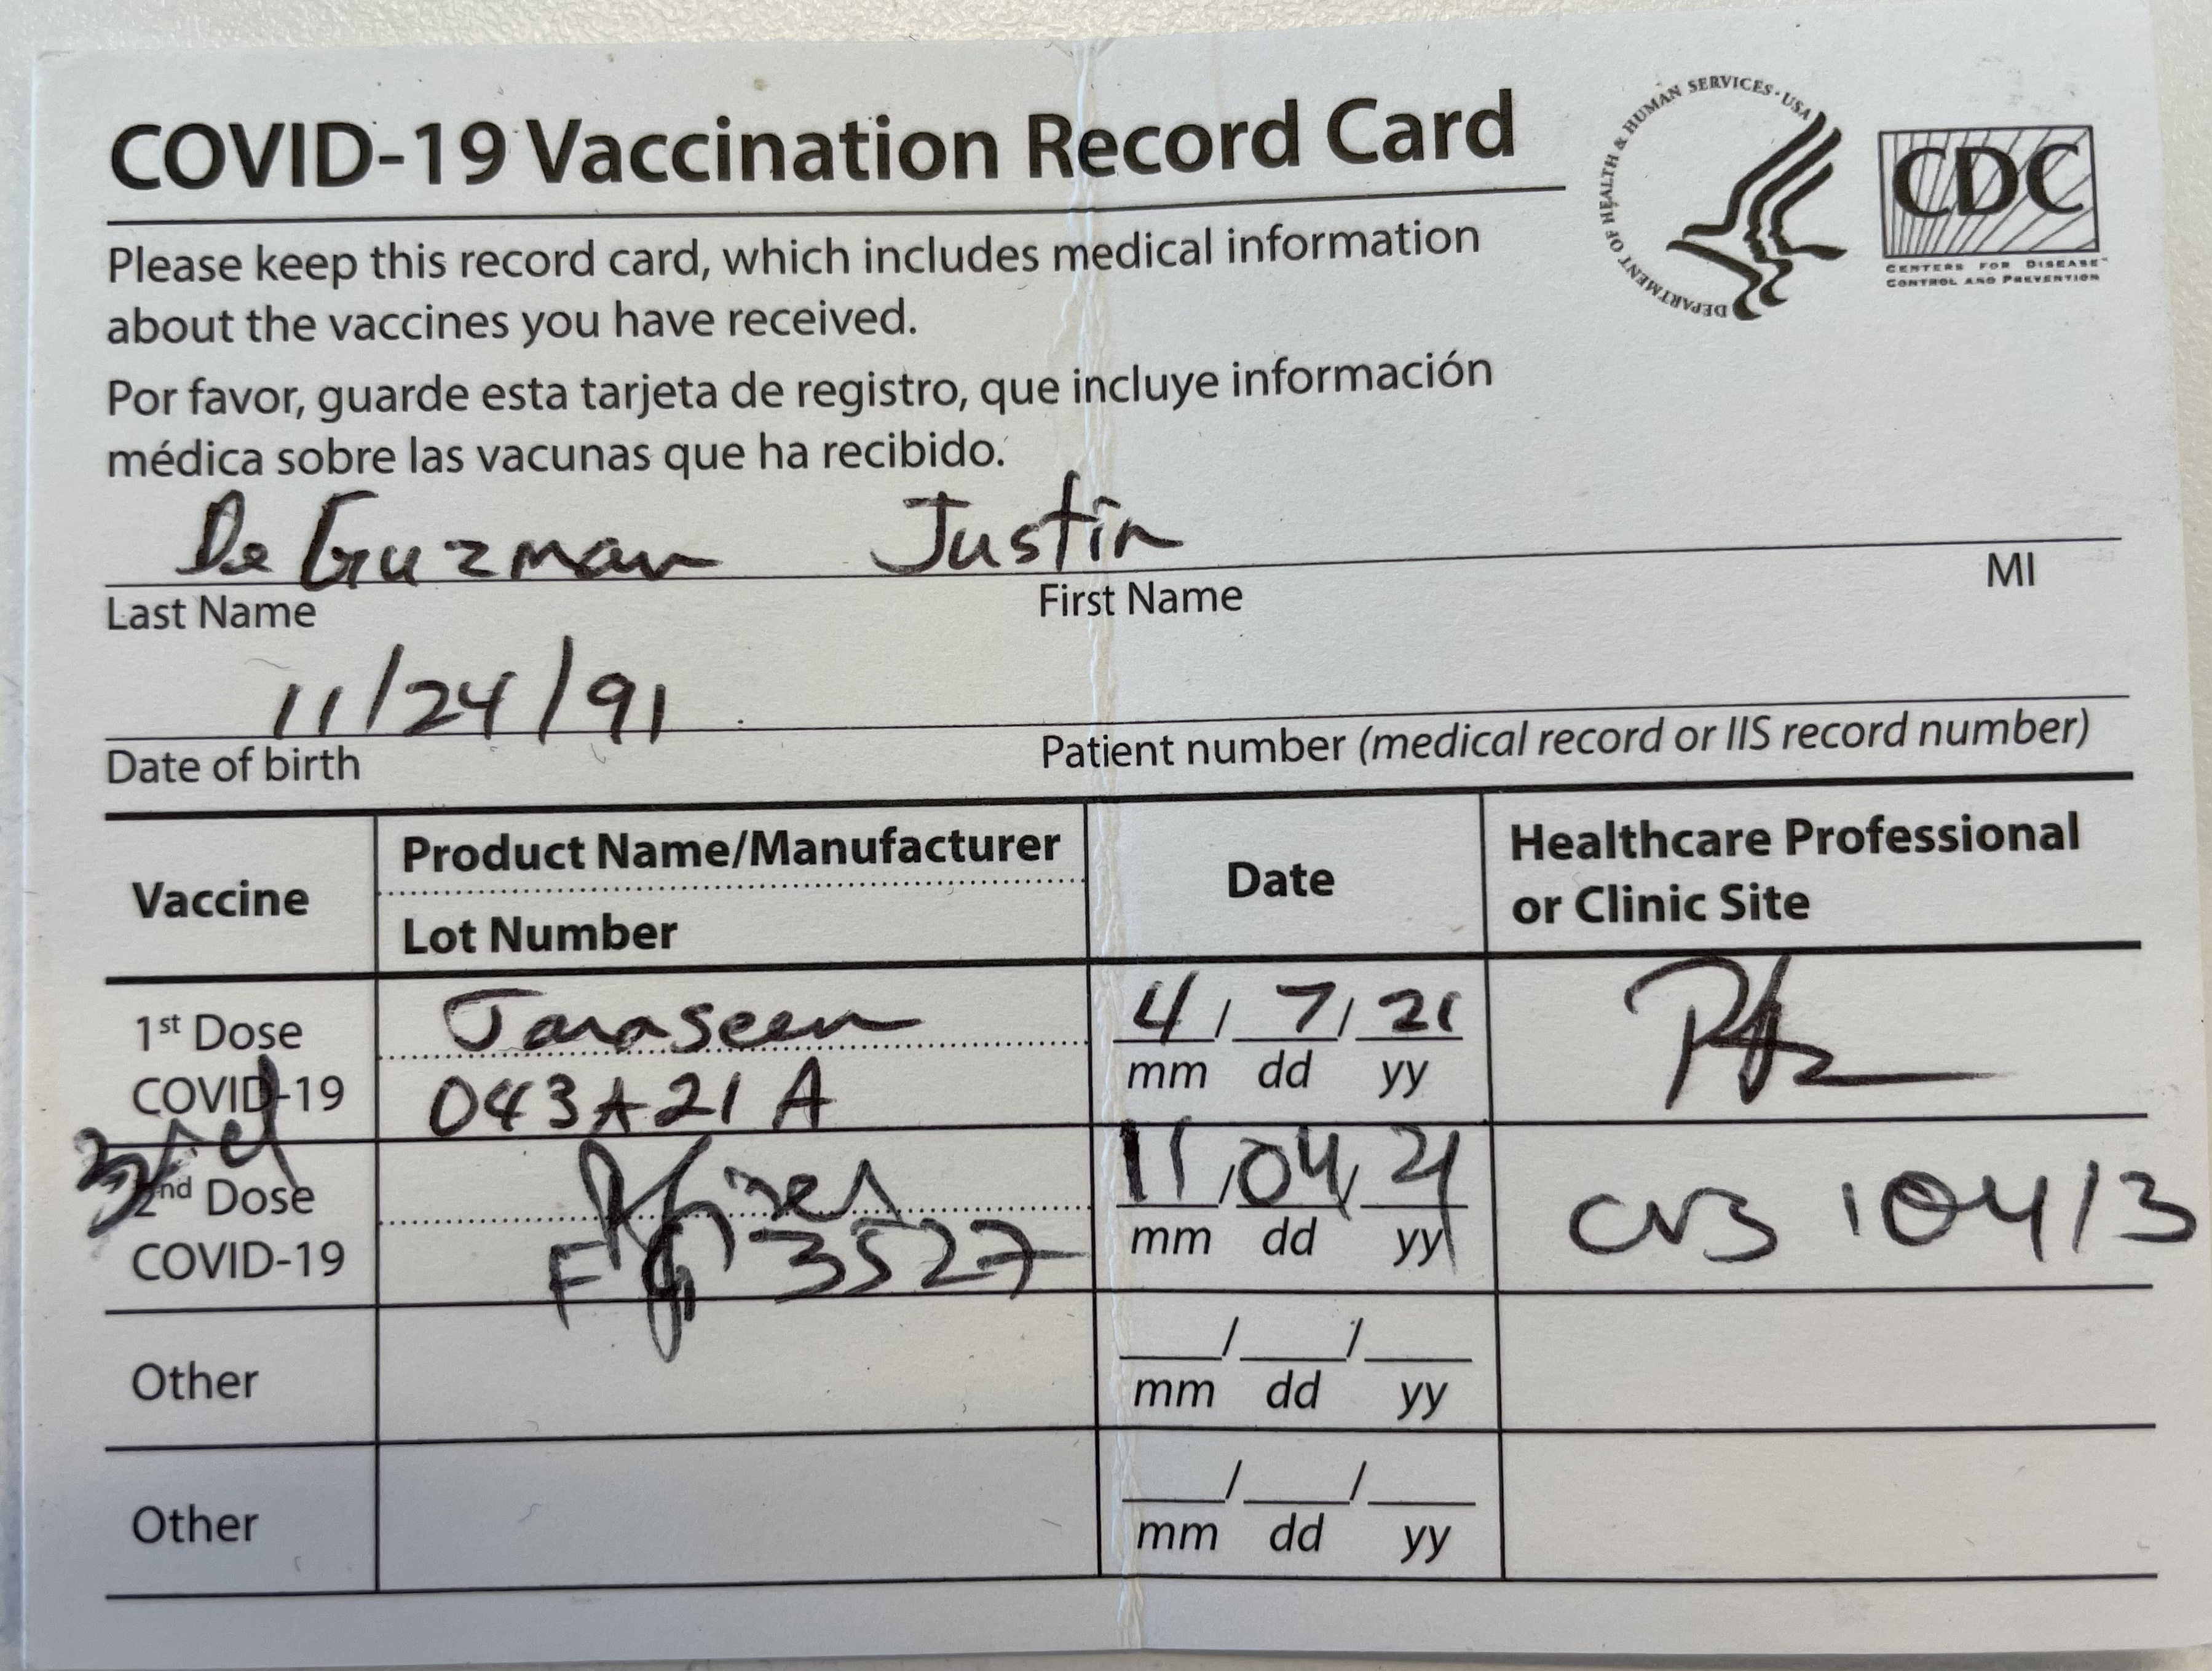 COVID-19 Vaccination Record Card
DEPARTMENT OF HEALTH & HUMAN SERVICES · USA
CDC
CENTERS FOR DISEASE
CONTROL AND PREVENTION
Please keep this record card, which includes medical information
about the vaccines you have received.
Por favor, guarde esta tarjeta de registro, que incluye información
médica sobre las vacunas que ha recibido.
De Guzman Justin
Last Name First Name MI
11/24/91
Date of birth Patient number (medical record or IIS record number)
Vaccine Product Name/Manufacturer Date Healthcare Professional
Lot Number or Clinic Site
1st Dose 4/7/21
COVID-19 043A21A mm dd yy
3rd
2nd Dose Pfizer 11/04/21 CVS 10413
COVID-19 3527 mm dd yy
Other / /
mm dd yy
Other / /
mm dd yy